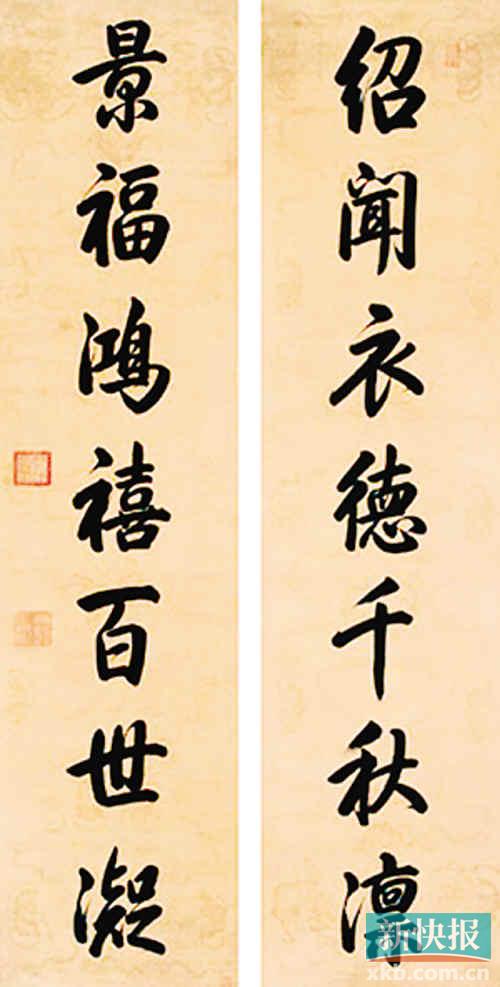 紹聞衣德千秋凛
景福鴻禧百世凝
新快报
xkb.com.cn